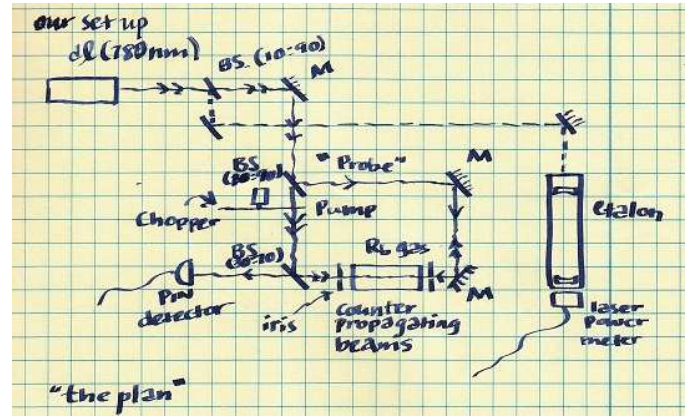 our set up
dl (780nm)
BS. (10-90)
M
BS
"Probe"
M
Chopper
Pump
etalon
BS
Rb gas
M
PIN
detector
iris
counter
propagating
beams
laser
power
meter
"the plan"